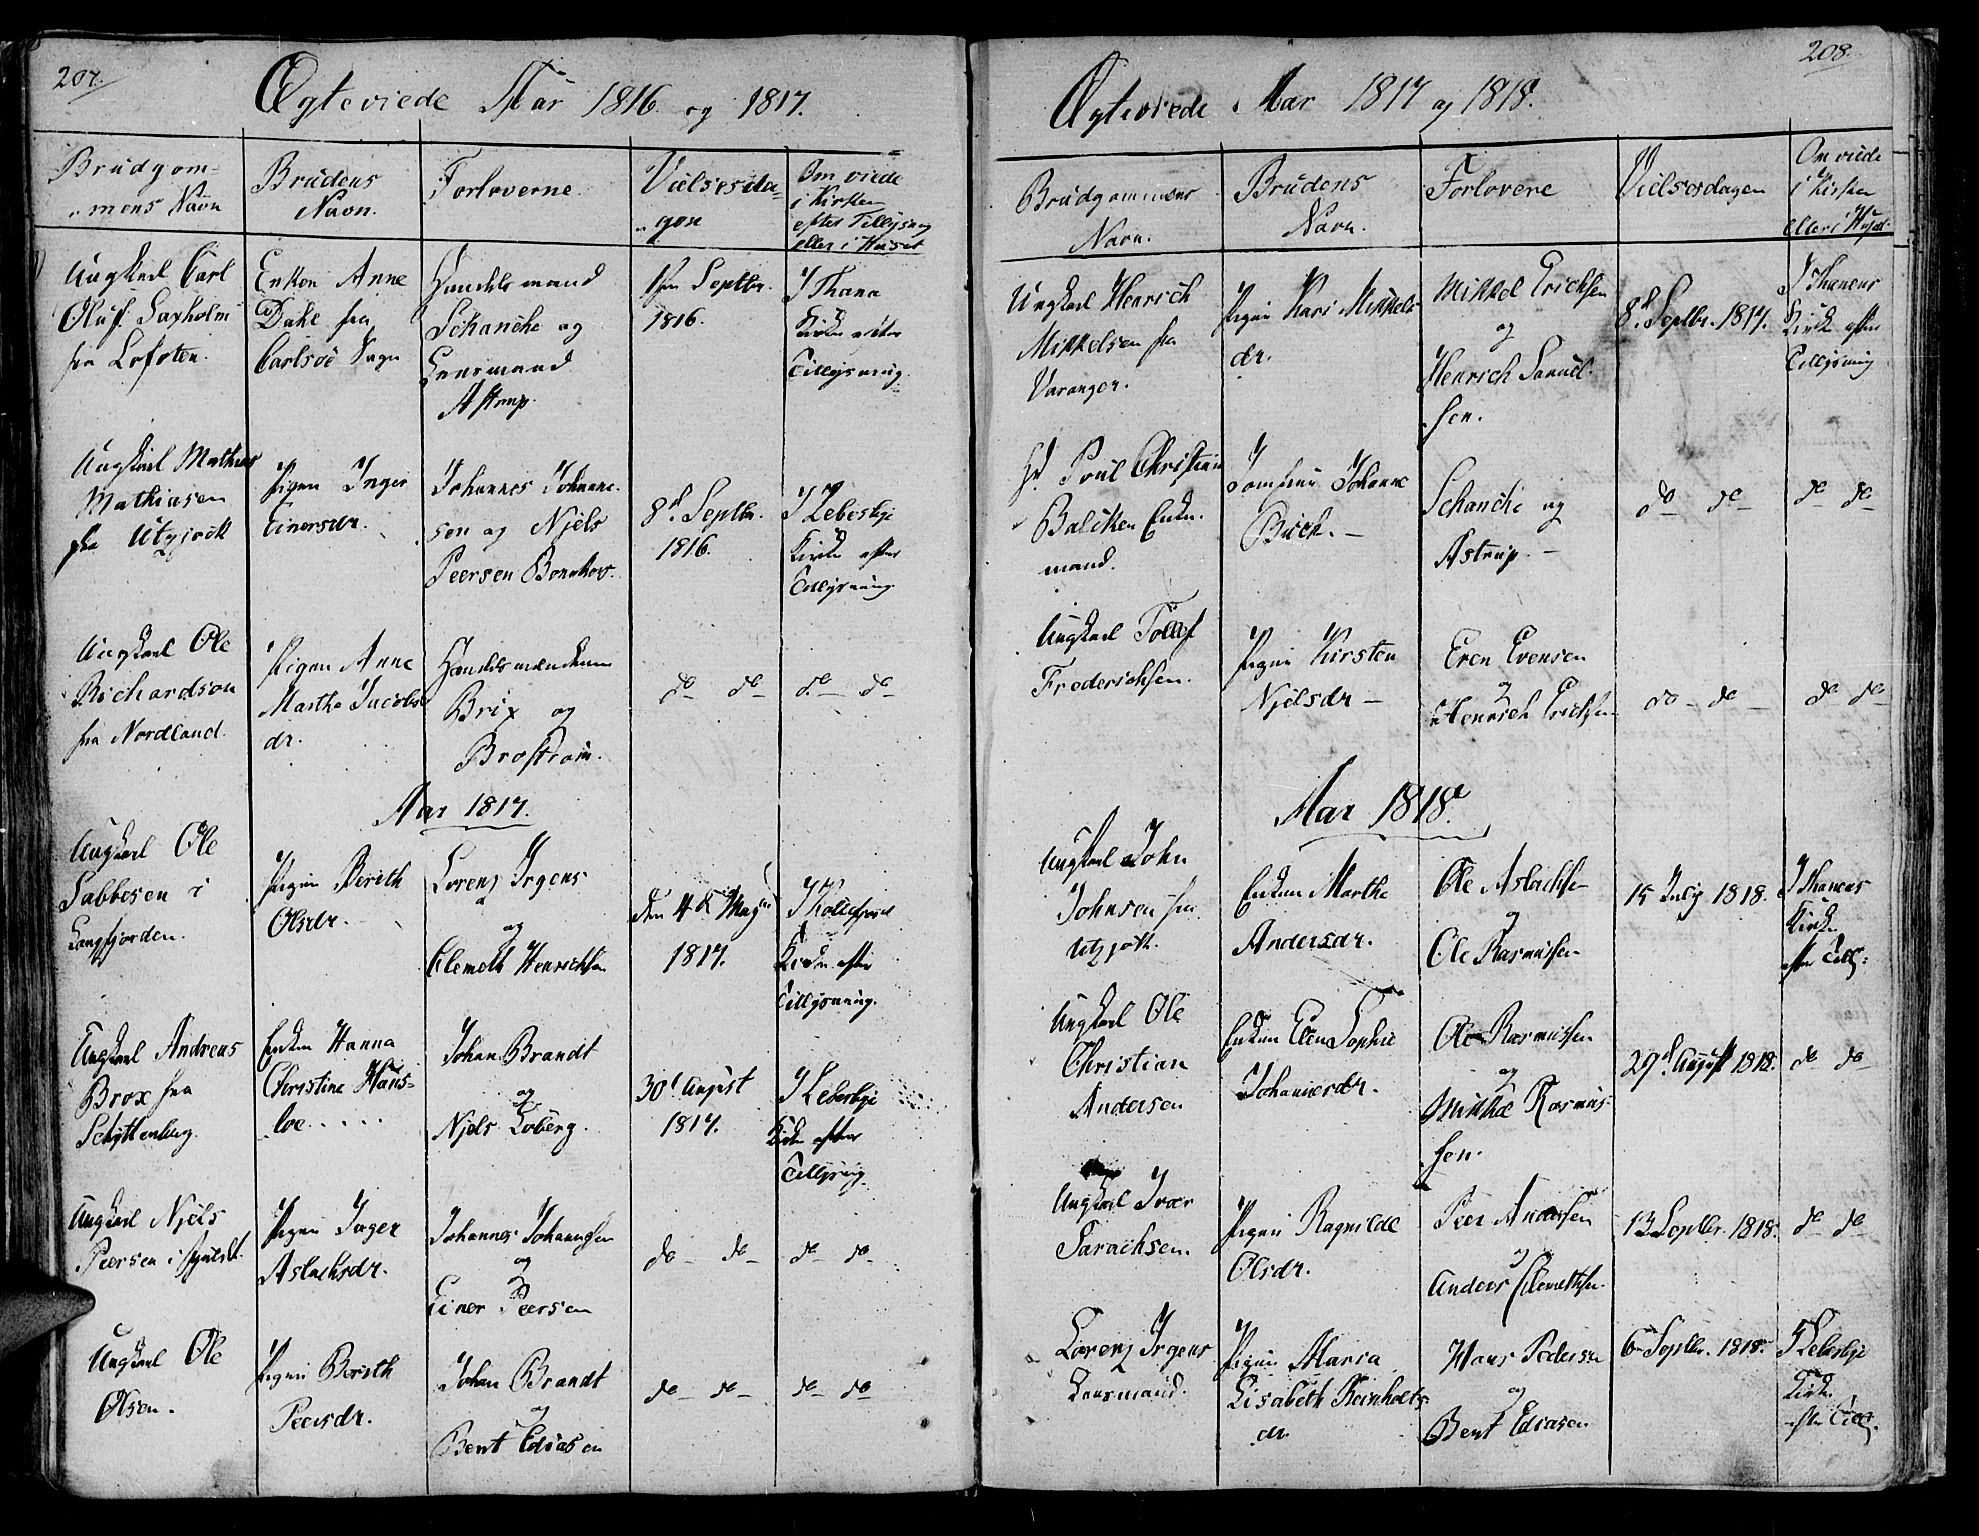 207.
Ægteviede Aar 1816 og 1817.
Brudgom-
mens Navn
Brudens
Navn.
Forloverne.
Vielsesda
gen
Om viede
i Kirken
efter Tillysning
eller i Huset
Ungkarl Carl
Oluf Saxholm
fra Lofoten.
Enken Anne
Dahl fra
Carlsøe Sogn
Handelsmand
Schanche og
Lensmand
Astrup.
1ste Septbr.
1816.
I Thana
Kirke efter
Tillysning.
Ungkarl Mathias
Mathiasen
fra Utzjock
Pigen Inger
Einersdr.
Johannes Johanne-
sen og Njels
Peersen Bonakas.
8d Septbr.
1816.
I Lebesbye
Kirke efter
Tillysning
Ungkarl Ole
Richardsen
fra Nordland.
Pigen Anne
Marthe Jacobs
dr.
Handelsmændene
Brix og
Brostrøm.
do do
do do
Aar 1817.
Ungkarl Ole
Sabbesen i
Langfjorden.
Pigen Berith
Olsdr.
Lorenz Irgens
og
Clemeth Henrichsen
den 4de May
1817.
I Kollefjord
Kirke efter
Tillysning.
Ungkarl Andreas
Brox fra
Enken Hanna
Christine Hans-
loe.....
Johan Brandt
og
Njels Loberg.
30d August
1817.
I Lebesbye
Kirke efter
Tillysning
Ungkarl Njels
Peersen i
Pigen Inger
Aslachsdr.
Johannes Johannesen
og
Einer Peersen
do do
do do
Ungkarl Ole
Olsen.
Pigen Berith
Peersdr.
Johan Brandt
og
Bent Ediasen
do do
do do
208.
Ægteviede Aar 1817 og 1818.
Brudgommens
Navn.
Brudens
Navn.
Forlovere
Vielsesdagen
Om viede
i Kirken
eller i Huset
Ungkarl Henrich
Mikkelsen fra
Varanger.
Pigen Kari Mikkels
dr.
Mikkel Erichsen
og
Henrich Samuel-
sen.
8d Septbr. 1817.
I Thanens
Kirke efter
Tillysning
Hr. Poul Christian
Balcken Enke-
mand.
Jomfrue Johanne
Buck. -
Schanche og
Astrup. -
do do
do do
Ungkarl Tollef
Frederichsen.
Pigen Kirsten
Njelsdr -
Even Evensen
og
Henrich Erichsen
do do
do do
Aar 1818.
Ungkarl John
Johnsen fra
Utzjok.
Enken Marthe
Andersdr.
Ole Aslachsen
og
Ole Rasmussen
15 July 1818.
I Thanens
Kirke
efter Till:
Ungkarl Ole
Christian
Andersen
Enken Elen Sophie
Johannesdr.
Ole Rasmussen
og
Mikkel Rasmus-
sen.
29d August 1818.
do do
Ungkarl Iver
Sarachsen.
Pigen Ragnilde
Olsdr.
Peer Andersen
og
Anders Clemethsen
13 Septbr. 1818.
do do
Lorenz Irgens
Lensmand.
Pigen Maria
Lisabeth Reinholts
dr.
Hans Pedersen
og
Bent Ediasen
6 Septbr. 1818.
I Lebesbye
Kirke
efter Till.